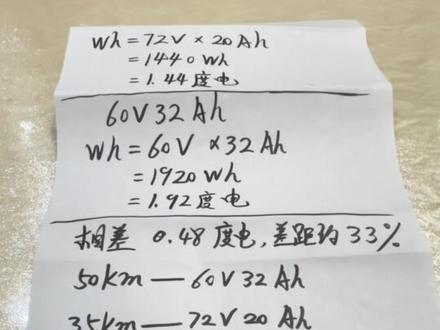 Wh = 72V × 20Ah
= 1440Wh
= 1.44度电
60V 32Ah
Wh = 60V × 32Ah
= 1920Wh
= 1.92度电
相差 0.48度电,差距约33%
50km — 60V 32Ah
35km — 72V 20Ah